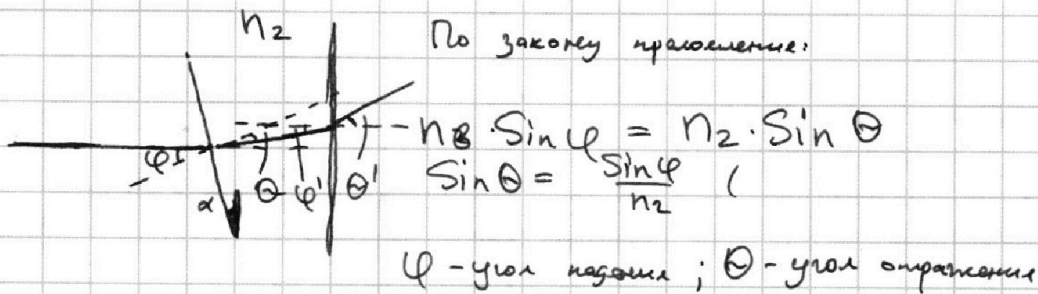 n₂
По закону преломления:
n_в · Sin φ = n₂ · Sin Θ
φ Θ φ' Θ'
Sin Θ = Sin φ / n₂ (
α
φ - угол падения ; Θ - угол отражения